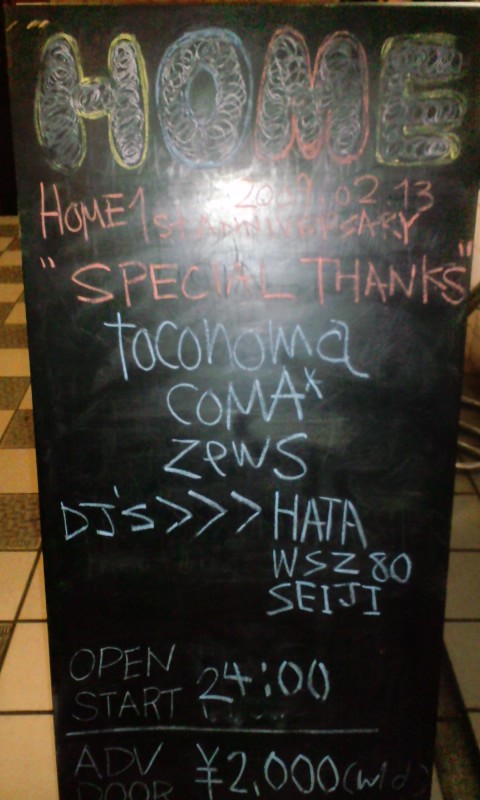 HOME
HOME 1st ANNIVERSARY
"SPECIAL THANKS"
toconoma
COMAX
zews
DJ's>>>HATA
WSZ80
SEIJI
OPEN
START 24:00
ADV ¥2,000(w1d)
DOOR